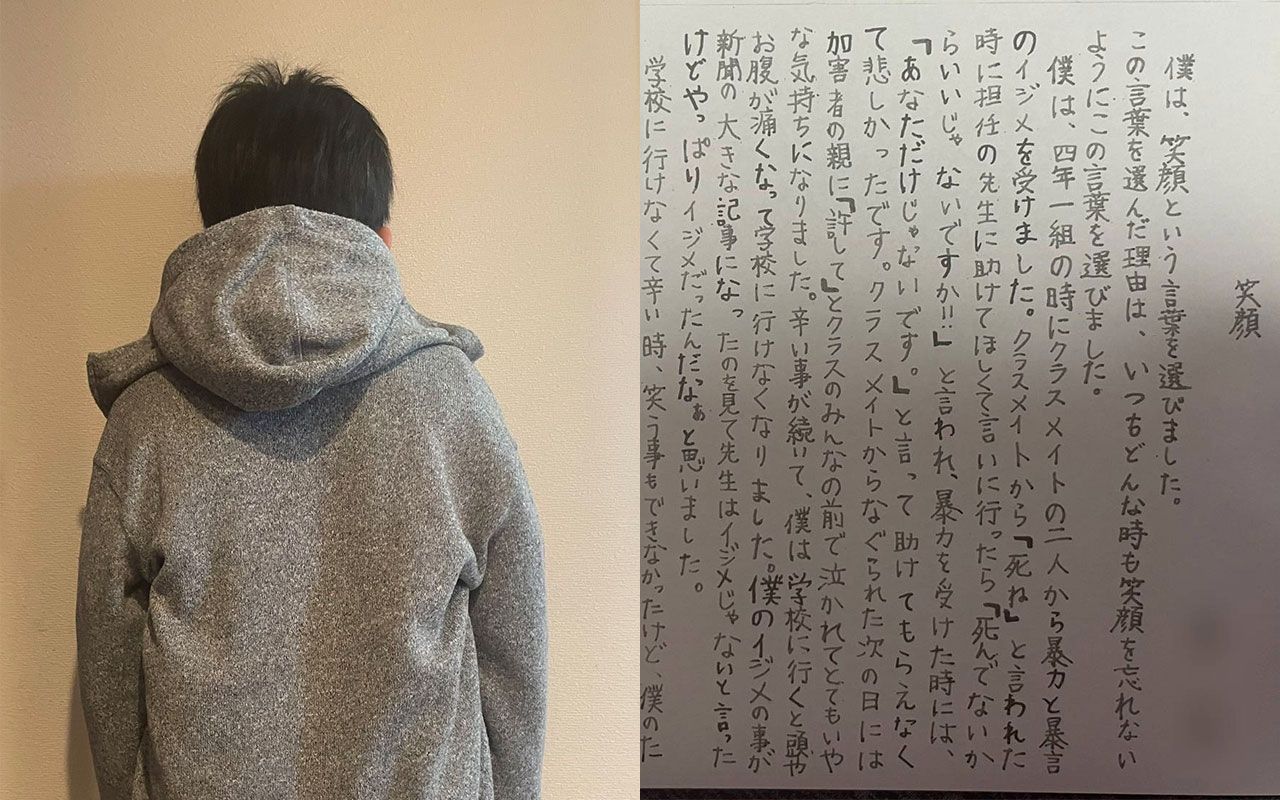 笑顔
僕は、笑顔という言葉を選びました。
この言葉を選んだ理由は、いつもどんな時も笑顔を忘れない
ようにこの言葉を選びました。
僕は、四年一組の時にクラスメイトの二人から暴力と暴言
のイジメを受けました。クラスメイトから「死ね」と言われた
時に担任の先生に助けてほしくて言いに行ったら「死んでないか
らいいじゃないですか!!」と言われ、暴力を受けた時には、
「あなただけじゃないです。」と言って助けてもらえなく
て悲しかったです。クラスメイトからなぐられた次の日には
加害者の親に「許して」とクラスのみんなの前で泣かれてとてもいや
な気持ちになりました。辛い事が続いて、僕は学校に行くと頭や
お腹が痛くなって学校に行けなくなりました。僕のイジメの事が
新聞の大きな記事になったのを見て先生はイジメじゃないと言った
けどやっぱりイジメだったんだなぁと思いました。
学校に行けなくて辛い時、笑う事もできなかったけど、僕のた